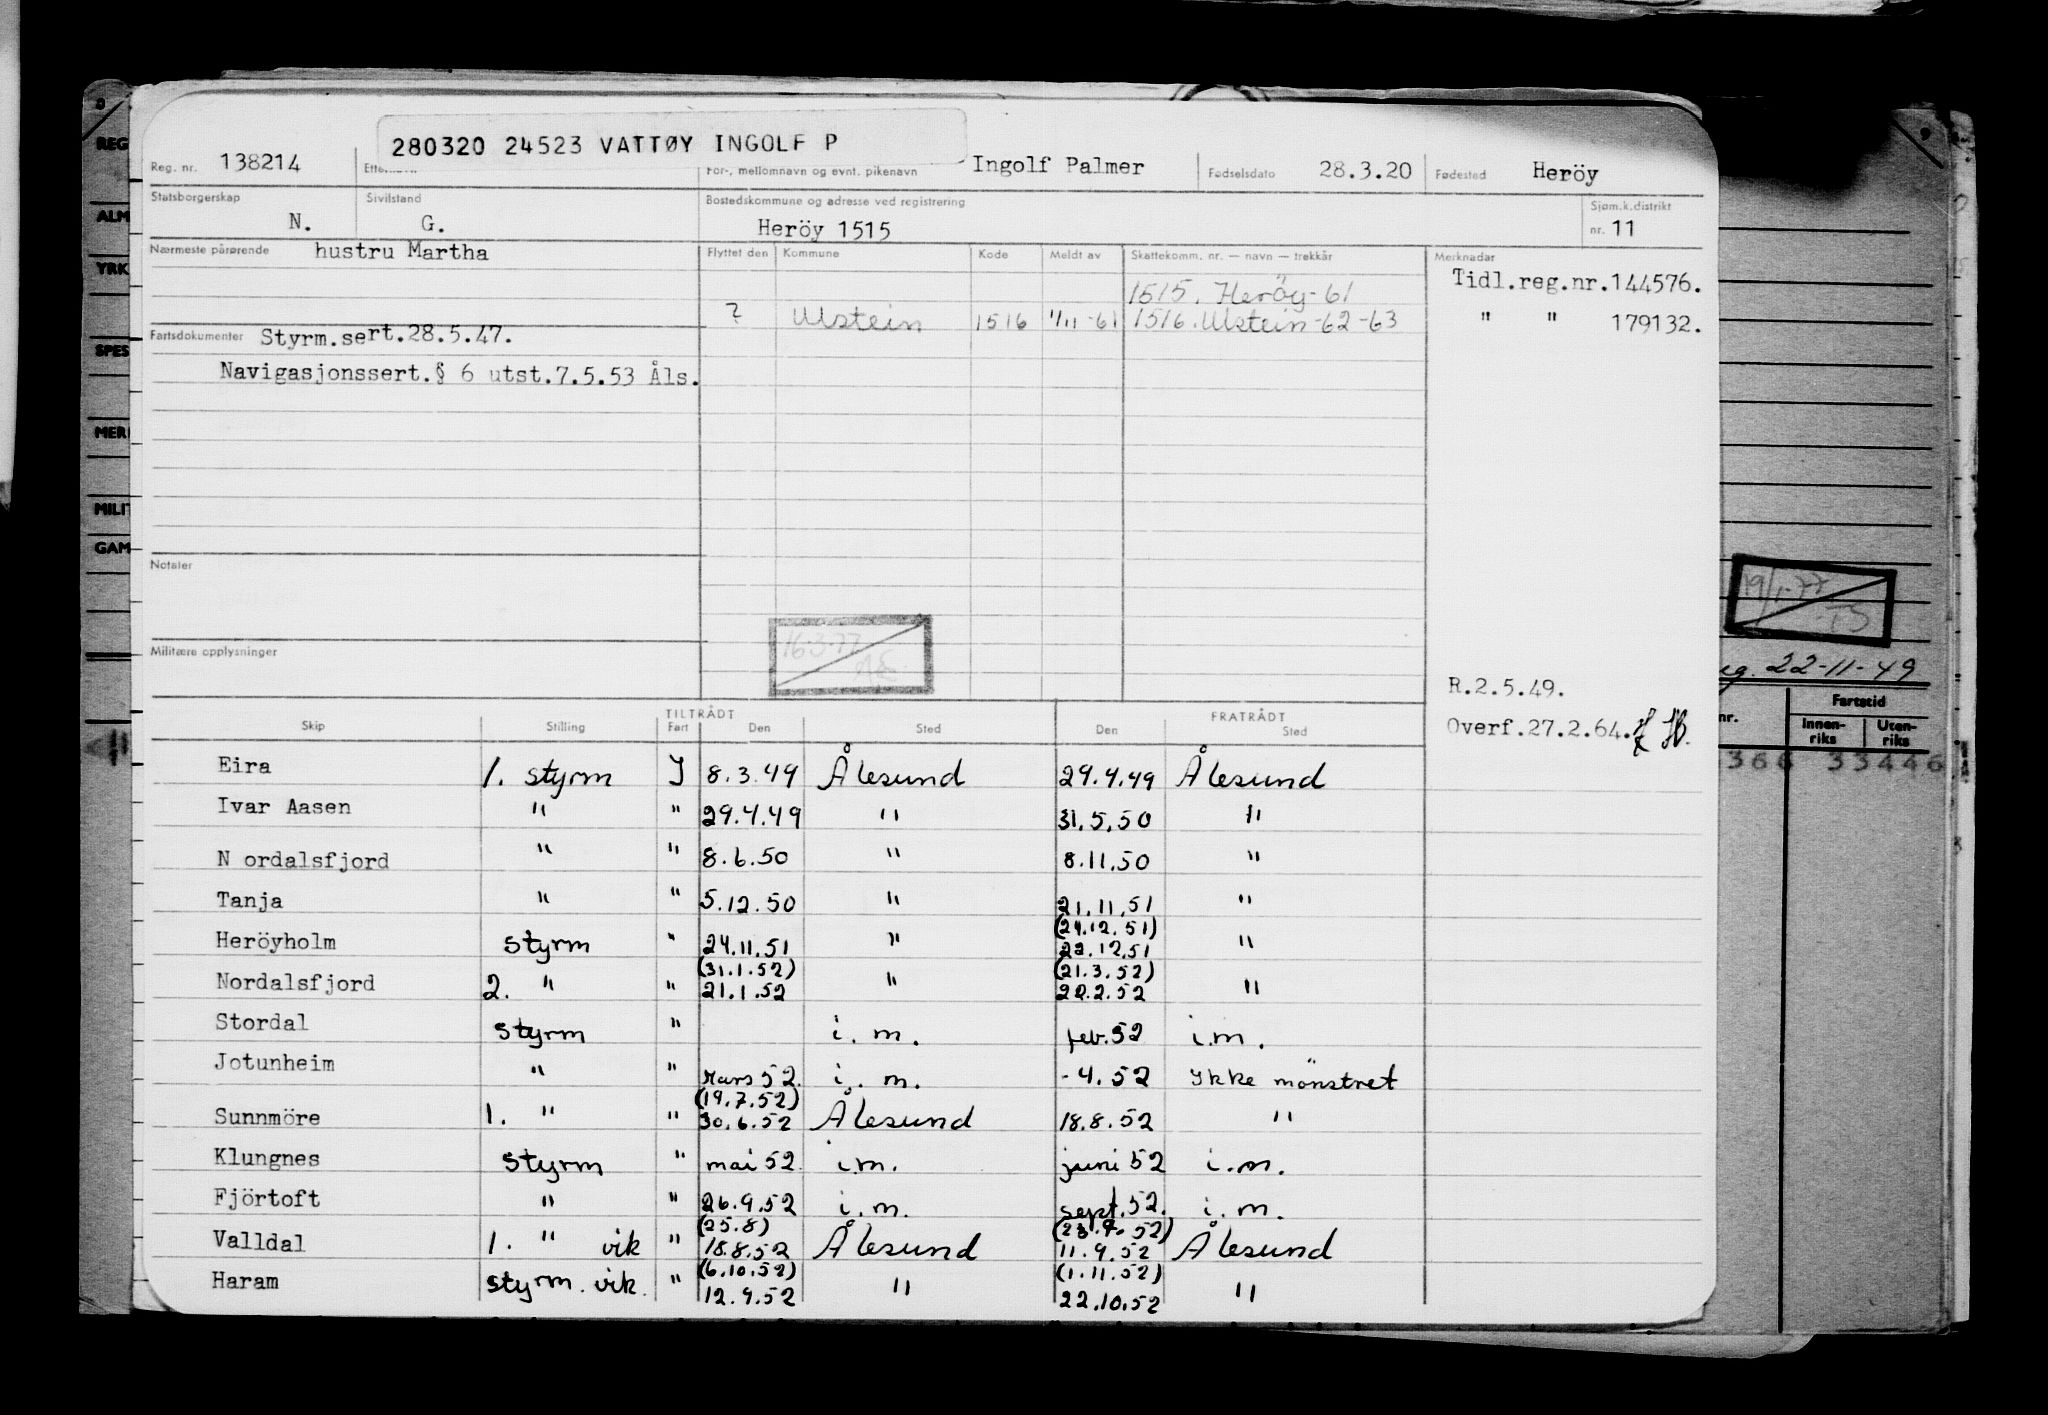 280320 24523 VATTØY INGOLF P
Reg. nr. 138214 For-, mellomnavn og evnt. pikenavn Ingolf Palmer Fødselsdato 28.3.20 Fødested Heröy
Statsborgerskap N. Sivilstand G. Bostedskommune og adresse ved registrering Heröy 1515 Sjøm.k.distrikt nr. 11
Nærmeste pårørende hustru Martha Flyttet den Kommune Kode Meldt av Skattekomm. nr. — navn — trekkår Merknader
Tidl.reg.nr.144576.
1515. Heröy-61
? Ulstein 1516 1/11-61 1516. Ulstein-62-63 " " 179132.
Fartsdokumenter Styrm.sert.28.5.47.
Navigasjonssert.§ 6 utst.7.5.53 Åls.
Notater
16.3.77
Militære opplysninger
R.2.5.49.
Overf.27.2.64.
TILTRÅDT FRATRÅDT
Skip Stilling Fart Den Sted Den Sted
Eira 1. styrm I 8.3.49 Ålesund 29.4.49 Ålesund
Ivar Aasen " " 29.4.49 " 31.5.50 "
N ordalsfjord " " 8.6.50 " 8.11.50 "
Tanja " " 5.12.50 " 21.11.51 "
(24.12.51)
Heröyholm styrm " 24.11.51 " 22.12.51 "
(31.1.52) (21.3.52)
Nordalsfjord 2. " " 21.1.52 " 22.2.52 "
Stordal styrm " i. m. feb.52 i.m.
Jotunheim " " mars 52. i. m. -4.52 Ikke mönstret
(19.7.52)
Sunnmöre 1. " " 30.6.52 Ålesund 18.8.52 "
Klungnes styrm " mai 52. i.m. juni 52 i.m.
Fjörtoft " " 26.9.52 i.m. sept.52. i.m.
(25.8) (23.9.52)
Valldal 1. " vik " 18.8.52 Ålesund 11.9.52 Ålesund
(6.10.52) (1.11.52)
Haram styrm. vik. " 12.9.52 " 22.10.52 "
REG
ALM
YRK
SPES
MER
MILIT
GAM
19/1-77
TS
22-11-49
nr. Fartstid
Innen-riks Uten-riks
366 33446